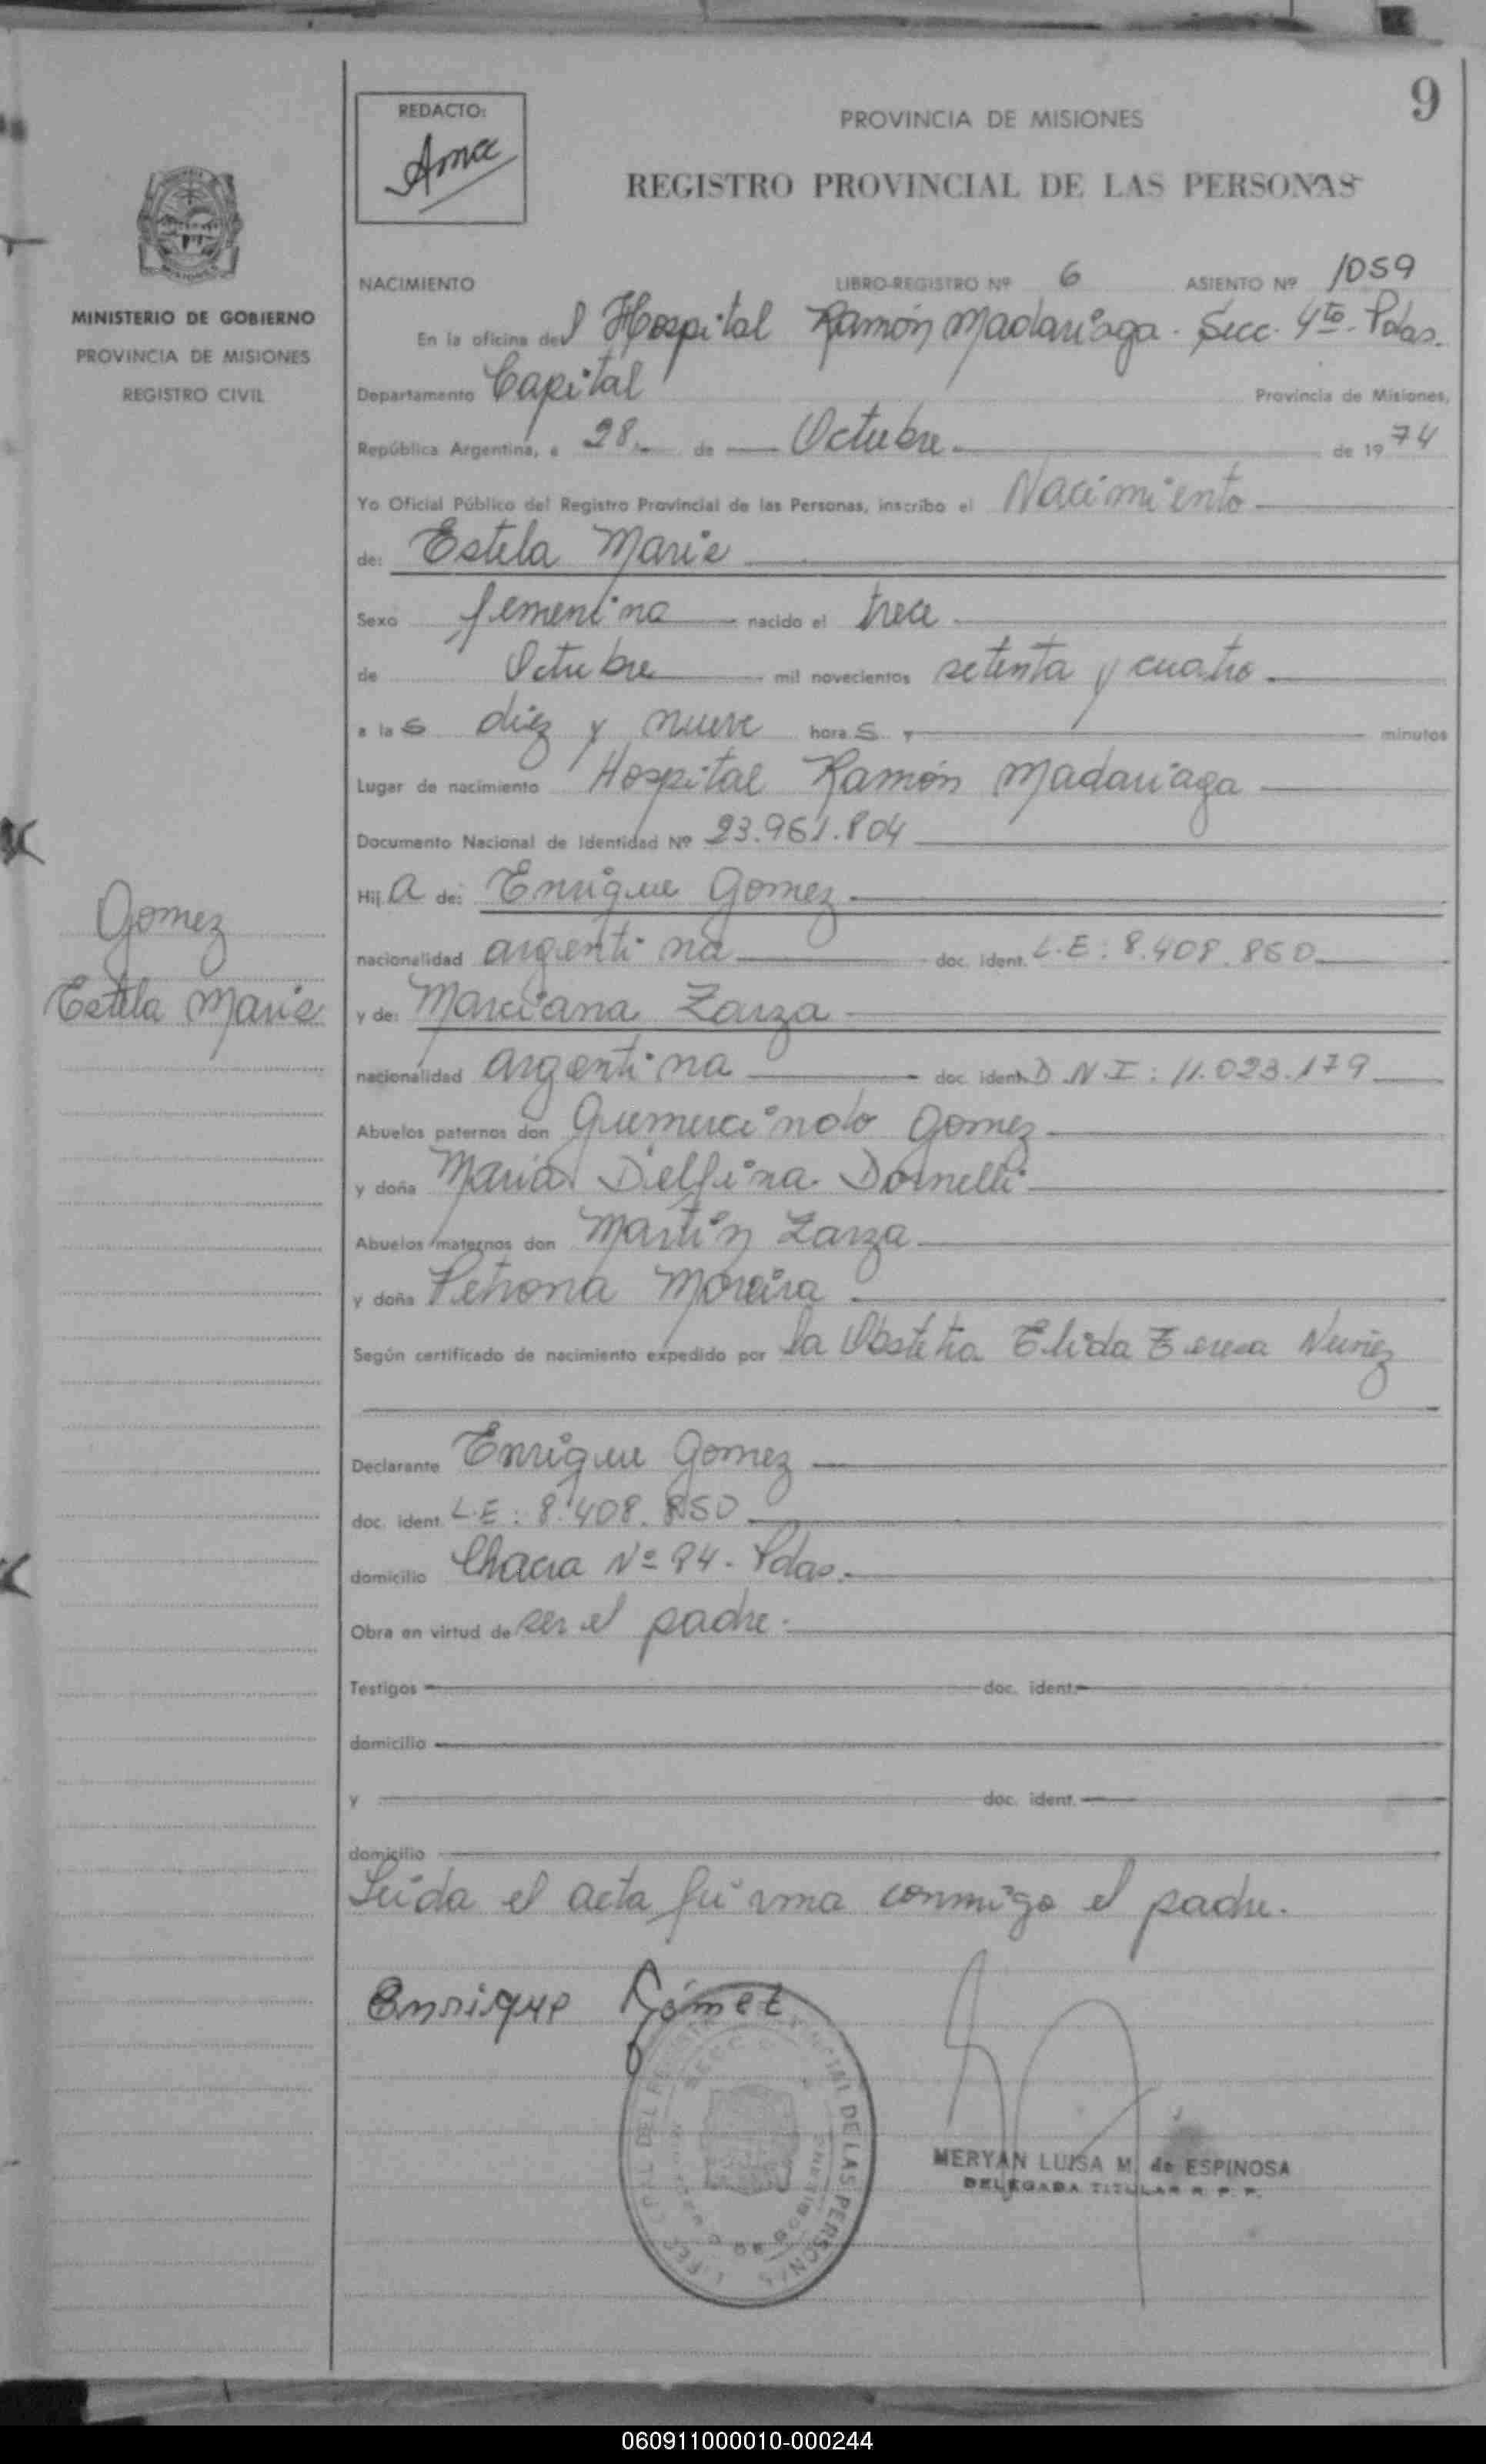 9
REDACTO:
PROVINCIA DE MISIONES
REGISTRO PROVINCIAL DE LAS PERSONAS
MINISTERIO DE GOBIERNO
PROVINCIA DE MISIONES
REGISTRO CIVIL
NACIMIENTO LIBRO-REGISTRO Nº 6 ASIENTO Nº 1059
En la oficina del Hospital Ramón Madariaga. Secc. 4ta. Pdas.
Departamento Capital Provincia de Misiones,
República Argentina, a 28 de Octubre de 1974
Yo Oficial Público del Registro Provincial de las Personas, inscribo el Nacimiento
de: Estela Maris
Sexo femenina nacido el trece
de Octubre mil novecientos setenta y cuatro
a las diez y nueve horas y minutos
Lugar de nacimiento Hospital Ramón Madariaga
Documento Nacional de Identidad Nº 23.961.804
Hija de: Enrique Gomez
nacionalidad argentina doc. ident. L.E: 8.408.850
y de: Marciana Zarza
nacionalidad argentina doc. ident. D.N.I: 11.023.179
Abuelos paternos don Gumercindo Gomez
y doña Maria Delfina Dornelli
Abuelos maternos don Martin Zarza
y doña Petrona Moreira
Según certificado de nacimiento expedido por la Obstetra Elida Teresa Nuñez
Declarante Enrique Gomez
doc. ident. L.E: 8.408.850
domicilio Chacra Nº 84. Pdas.
Obra en virtud de ser el padre.
Testigos doc. ident.
domicilio
y doc. ident.
domicilio
Leida el acta firma conmigo el padre.
Enrique Gómez
Gomez
Estela Maris
DE LAS PERSONAS
MERYAN LUISA M. de ESPINOSA
DELEGADA TITULAR R. P. P.
060911000010-000244